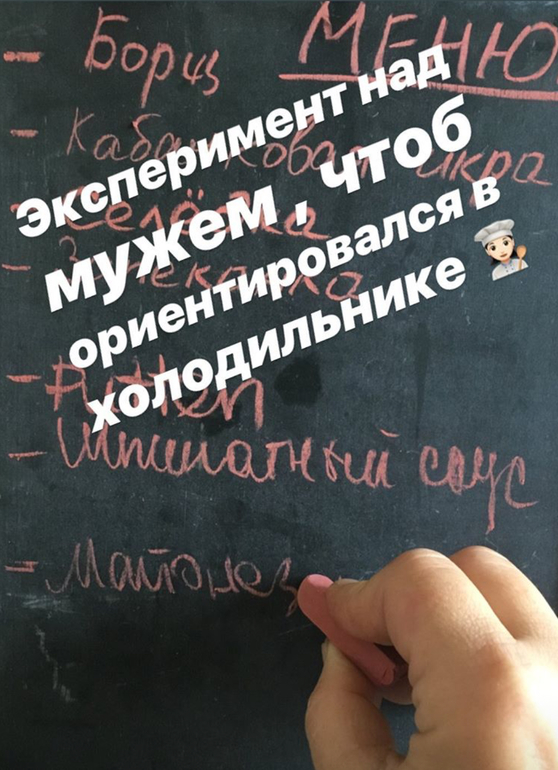 МЕНЮ
- Борщ
- Кабачковая икра
- Селёдка
- Запеканка
- Шпинатный соус
- Майонез
Эксперимент над
мужем , чтоб
ориентировался в
холодильнике